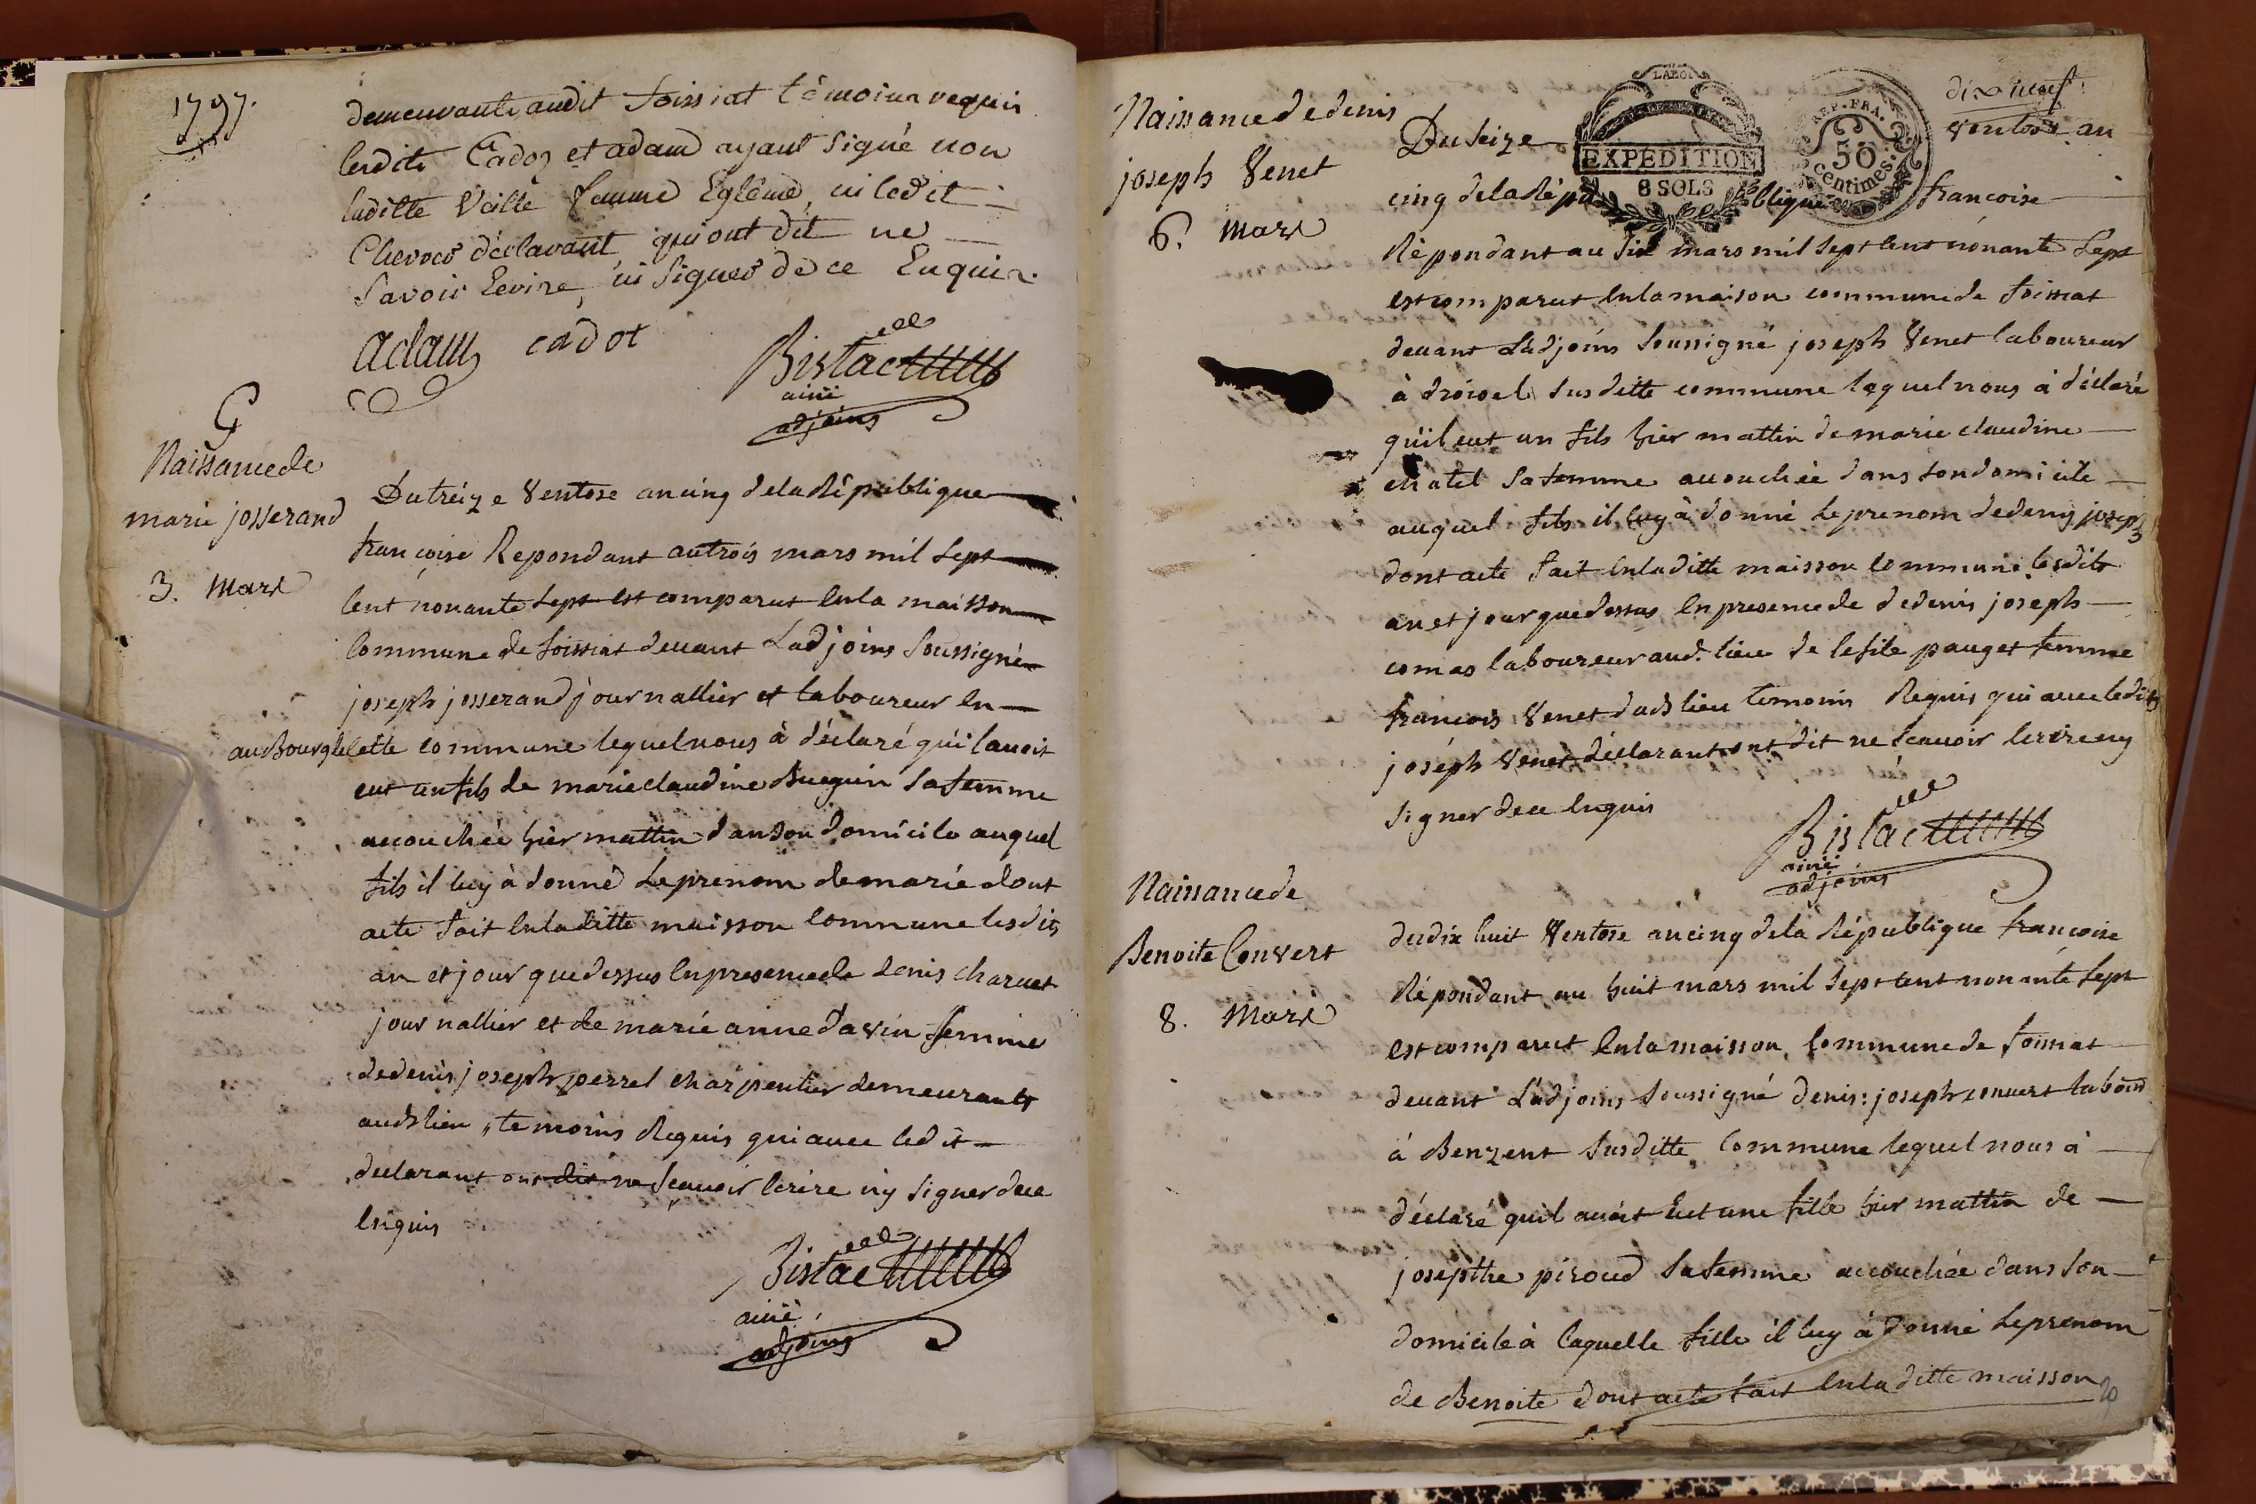 1797.
demeurants audit foissiat témoins requis
lesdits Cadoz et adam ayant signé non
laditte Veille femme Eglême, ni ledit
declarant, qui ont dit ne
savoir Ecrire, ni signer de ce Enquis.
adam cadot
Bistac
ainé
adjoins
G
Naissance de
marie josserand
3. Mars
Du treize Ventose an cinq de la République
françoise Repondant au trois mars mil sept
cent nonante sept est comparut en la maisson
commune de foissiat devant L'adjoins soussigné
joseph josserand journallier et laboureur en
au Bourg de cette commune lequel nous à déclaré qu'il avoit
eut un fils de marie claudine Buequin sa femme
accouchée hier mattin dans son domicile auquel
fils il luy à donné le prenom de marie dont
acte fait en la ditte maisson commune lesdits
an et jour que dessus en presence de denis charuet
journallier et de marie anne davin femme
de denis joseph perrel charpentier demeurants
aud. lieu, temoins Requis qui avec ledit
declarant ont dit ne scavoir écrire ny signer de ce
enquis
Bistac
ainé
adjoins
Naissance de denis
joseph Venet
6. Mars
LABOI
EXPEDITION
8 SOLS
REP. FRA.
50
centimes.
dix neuf
Du seize ventose an
cinq de la République françoise
Répondant au six mars mil sept cent nonante sept
est comparut en la maison commune de foissiat
devant L'adjoins soussigné joseph Venet laboureur
à susditte commune lequel nous à déclaré
qu'il eut un fils hier mattin de marie claudine
chatel sa femme accouchée dans son domicile
auquel fils il luy à donné le prenom de denis joseph
dont acte fait en la ditte maisson commune lesdits
an et jour que dessus en presence de de denis joseph
comas laboureur aud. lieu de pauget femme
francois Venet dud. lieu temoins Requis qui avec ledit
joséph Venet déclarant ont dit ne scavoir écrire ny
signer de ce enquis
Bistac
ainé
adjoins
Naissance de
Benoite Convert
8. Mars
du dix huit Ventose an cinq de la République françoise
Répondant au huit mars mil sept cent nonante sept
est comparut en la maisson commune de foissiat
devant L'adjoins soussigné denis: joseph convert labour
à Benzent susditte commune lequel nous à
déclaré qu'il avoit eut une fille hier mattin de
josepthe piroud sa femme accouchée dans son
domicile à laquelle fille il luy à donné le prenom
de Benoite dont acte fait en la ditte maisson